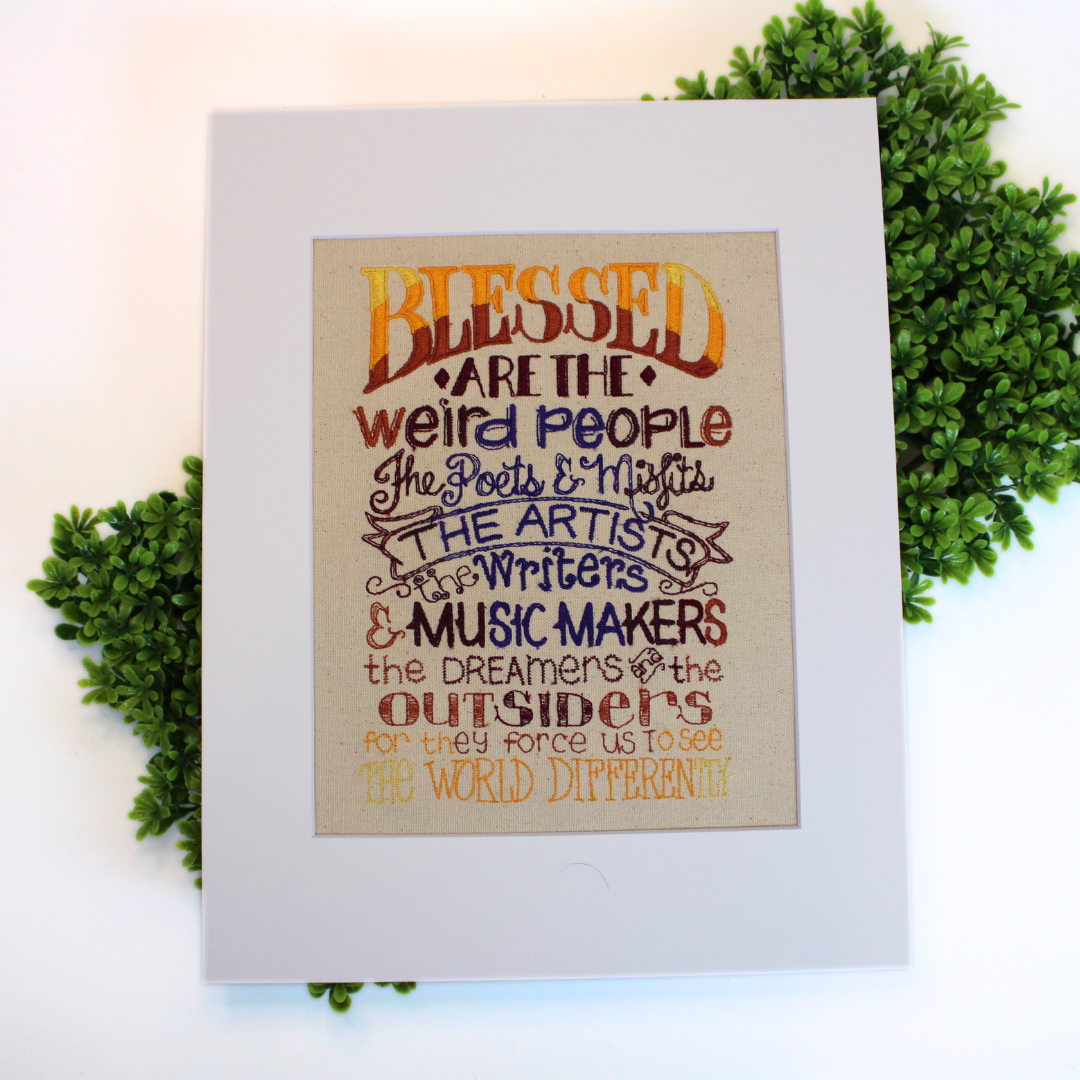 BLESSED
ARE THE
weird PEOPLE
The Poets & Misfits
THE ARTISTS
the Writers
& MUSIC MAKERS
the DREAmERS and the
OUTSIDers
for they force us To see
THE WORLD DIFFERENTLY